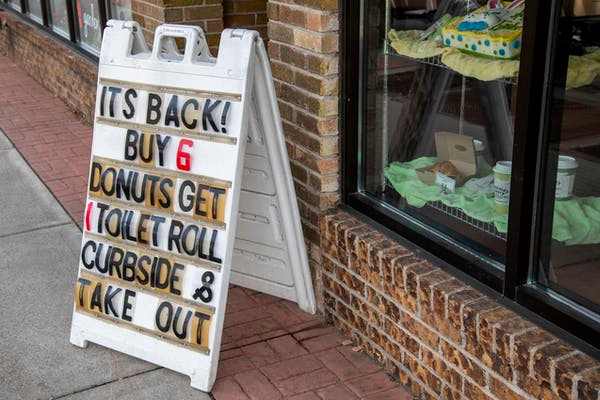 ITS BACK!
BUY 6
DONUTS GET
1 TOILET ROLL
CURBSIDE &
TAKE OUT